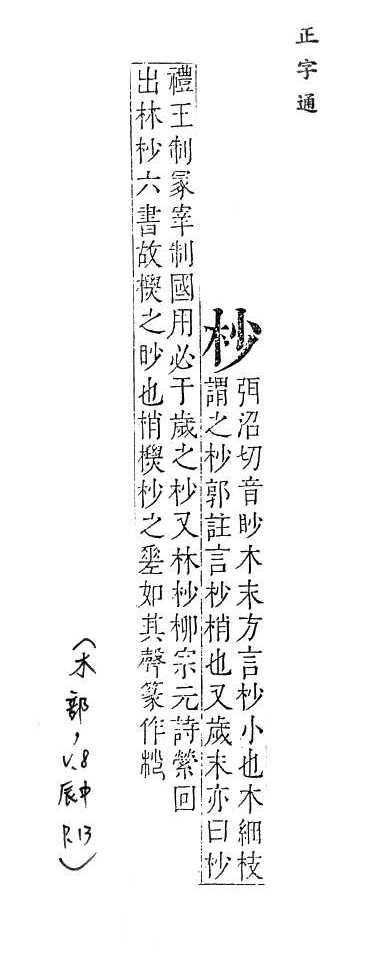 正字通
杪
弭沼切音眇木末方言杪小也木細枝
謂之杪郭註言杪梢也又歲末亦曰杪
禮王制冢宰制國用必于歲之杪又林杪柳宗元詩縈回
出林杪六書故之眇也梢杪之如其聲篆作
（木部，V.8
辰中
P.13）